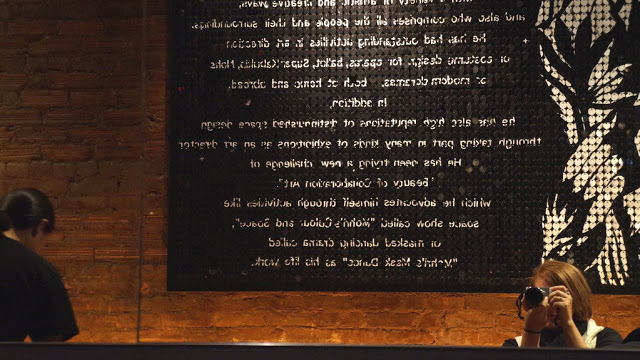 of artistic and creative ways,
and also who comprises all the people and their surroundings.
He has had outstanding activities in art direction
or costume design for operas, ballet, Super Kabuki, Nohs
or modern dramas, both at home and abroad.
In addition,
he has also high reputations of distinguished space design
through taking part in many kinds of exhibitions as an art director
He has been trying a new challenge of
"Beauty of Collaboration Art"
which he advocates himself through activities like
space show called "Mohri's Colour and Space",
or masked dancing drama called
"Mohri's Mask Dance" as his life work.